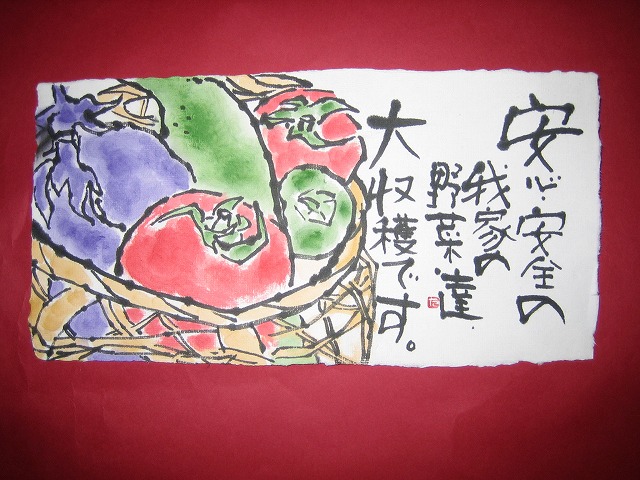 安心安全の
我家の
野菜達
大収穫です。